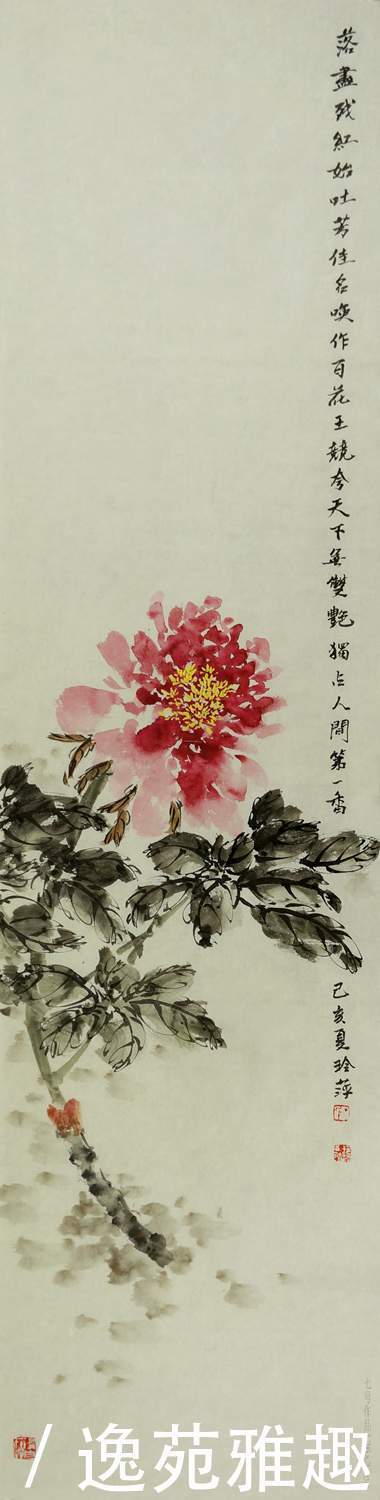 落盡残红始吐芳佳名唤作百花王競夸天下無雙艷獨占人間第一香
己亥夏玲萍
/ 逸苑雅趣